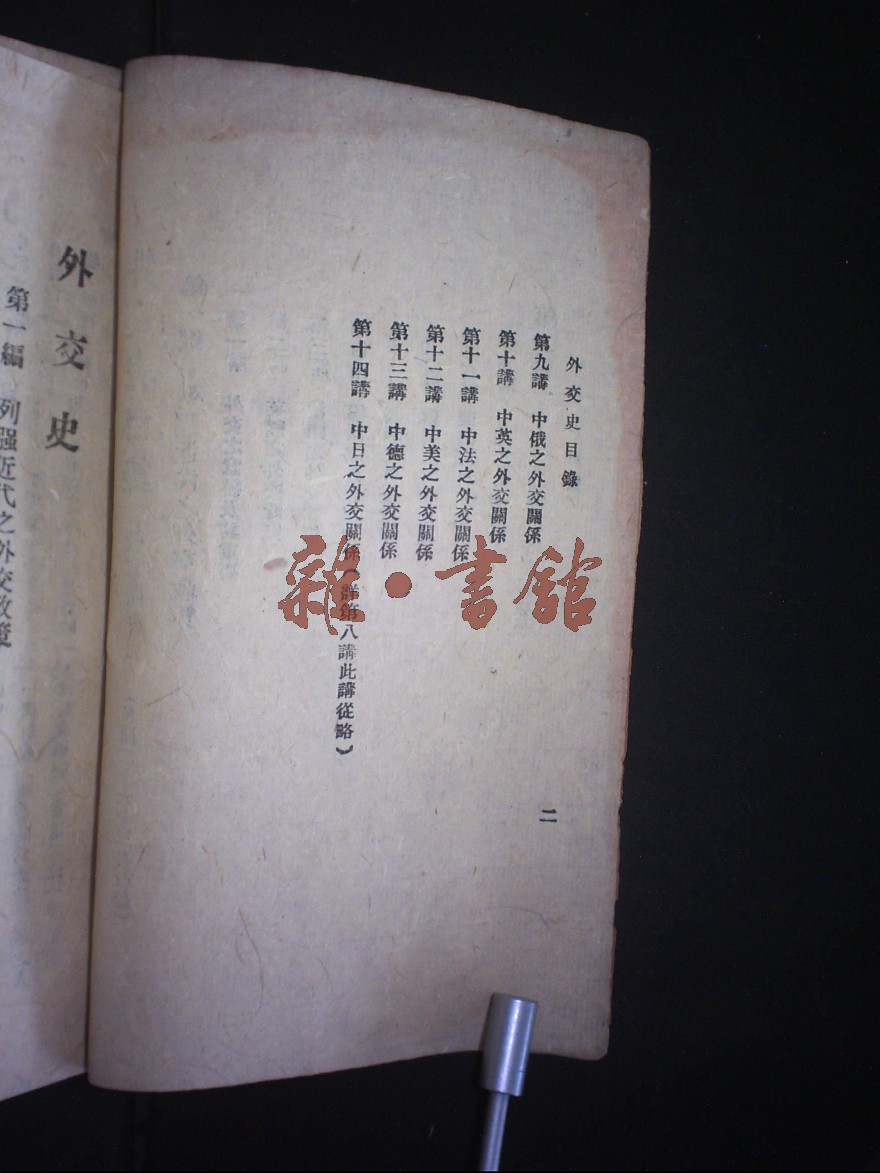 外交史目錄
二
第九講　中俄之外交關係
第十講　中英之外交關係
第十一講　中法之外交關係
第十二講　中美之外交關係
第十三講　中德之外交關係
第十四講　中日之外交關係（詳第八講此講從略）
外交史
第一編　列强近代之外交政策
雜·書館